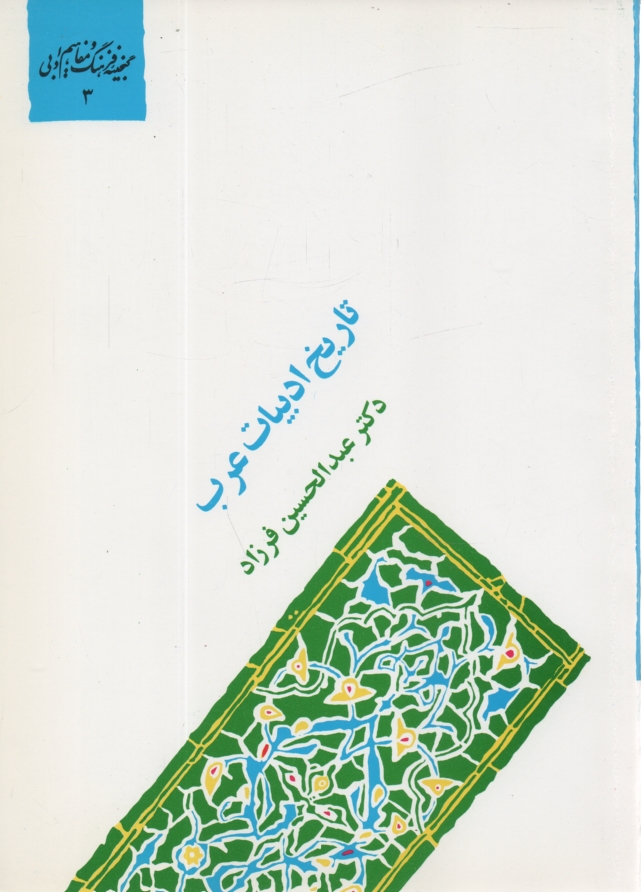 گنجینه فرهنگ و مفاهیم ادبی
۳
تاریخ ادبیات عرب
دکتر عبدالحسین فرزاد